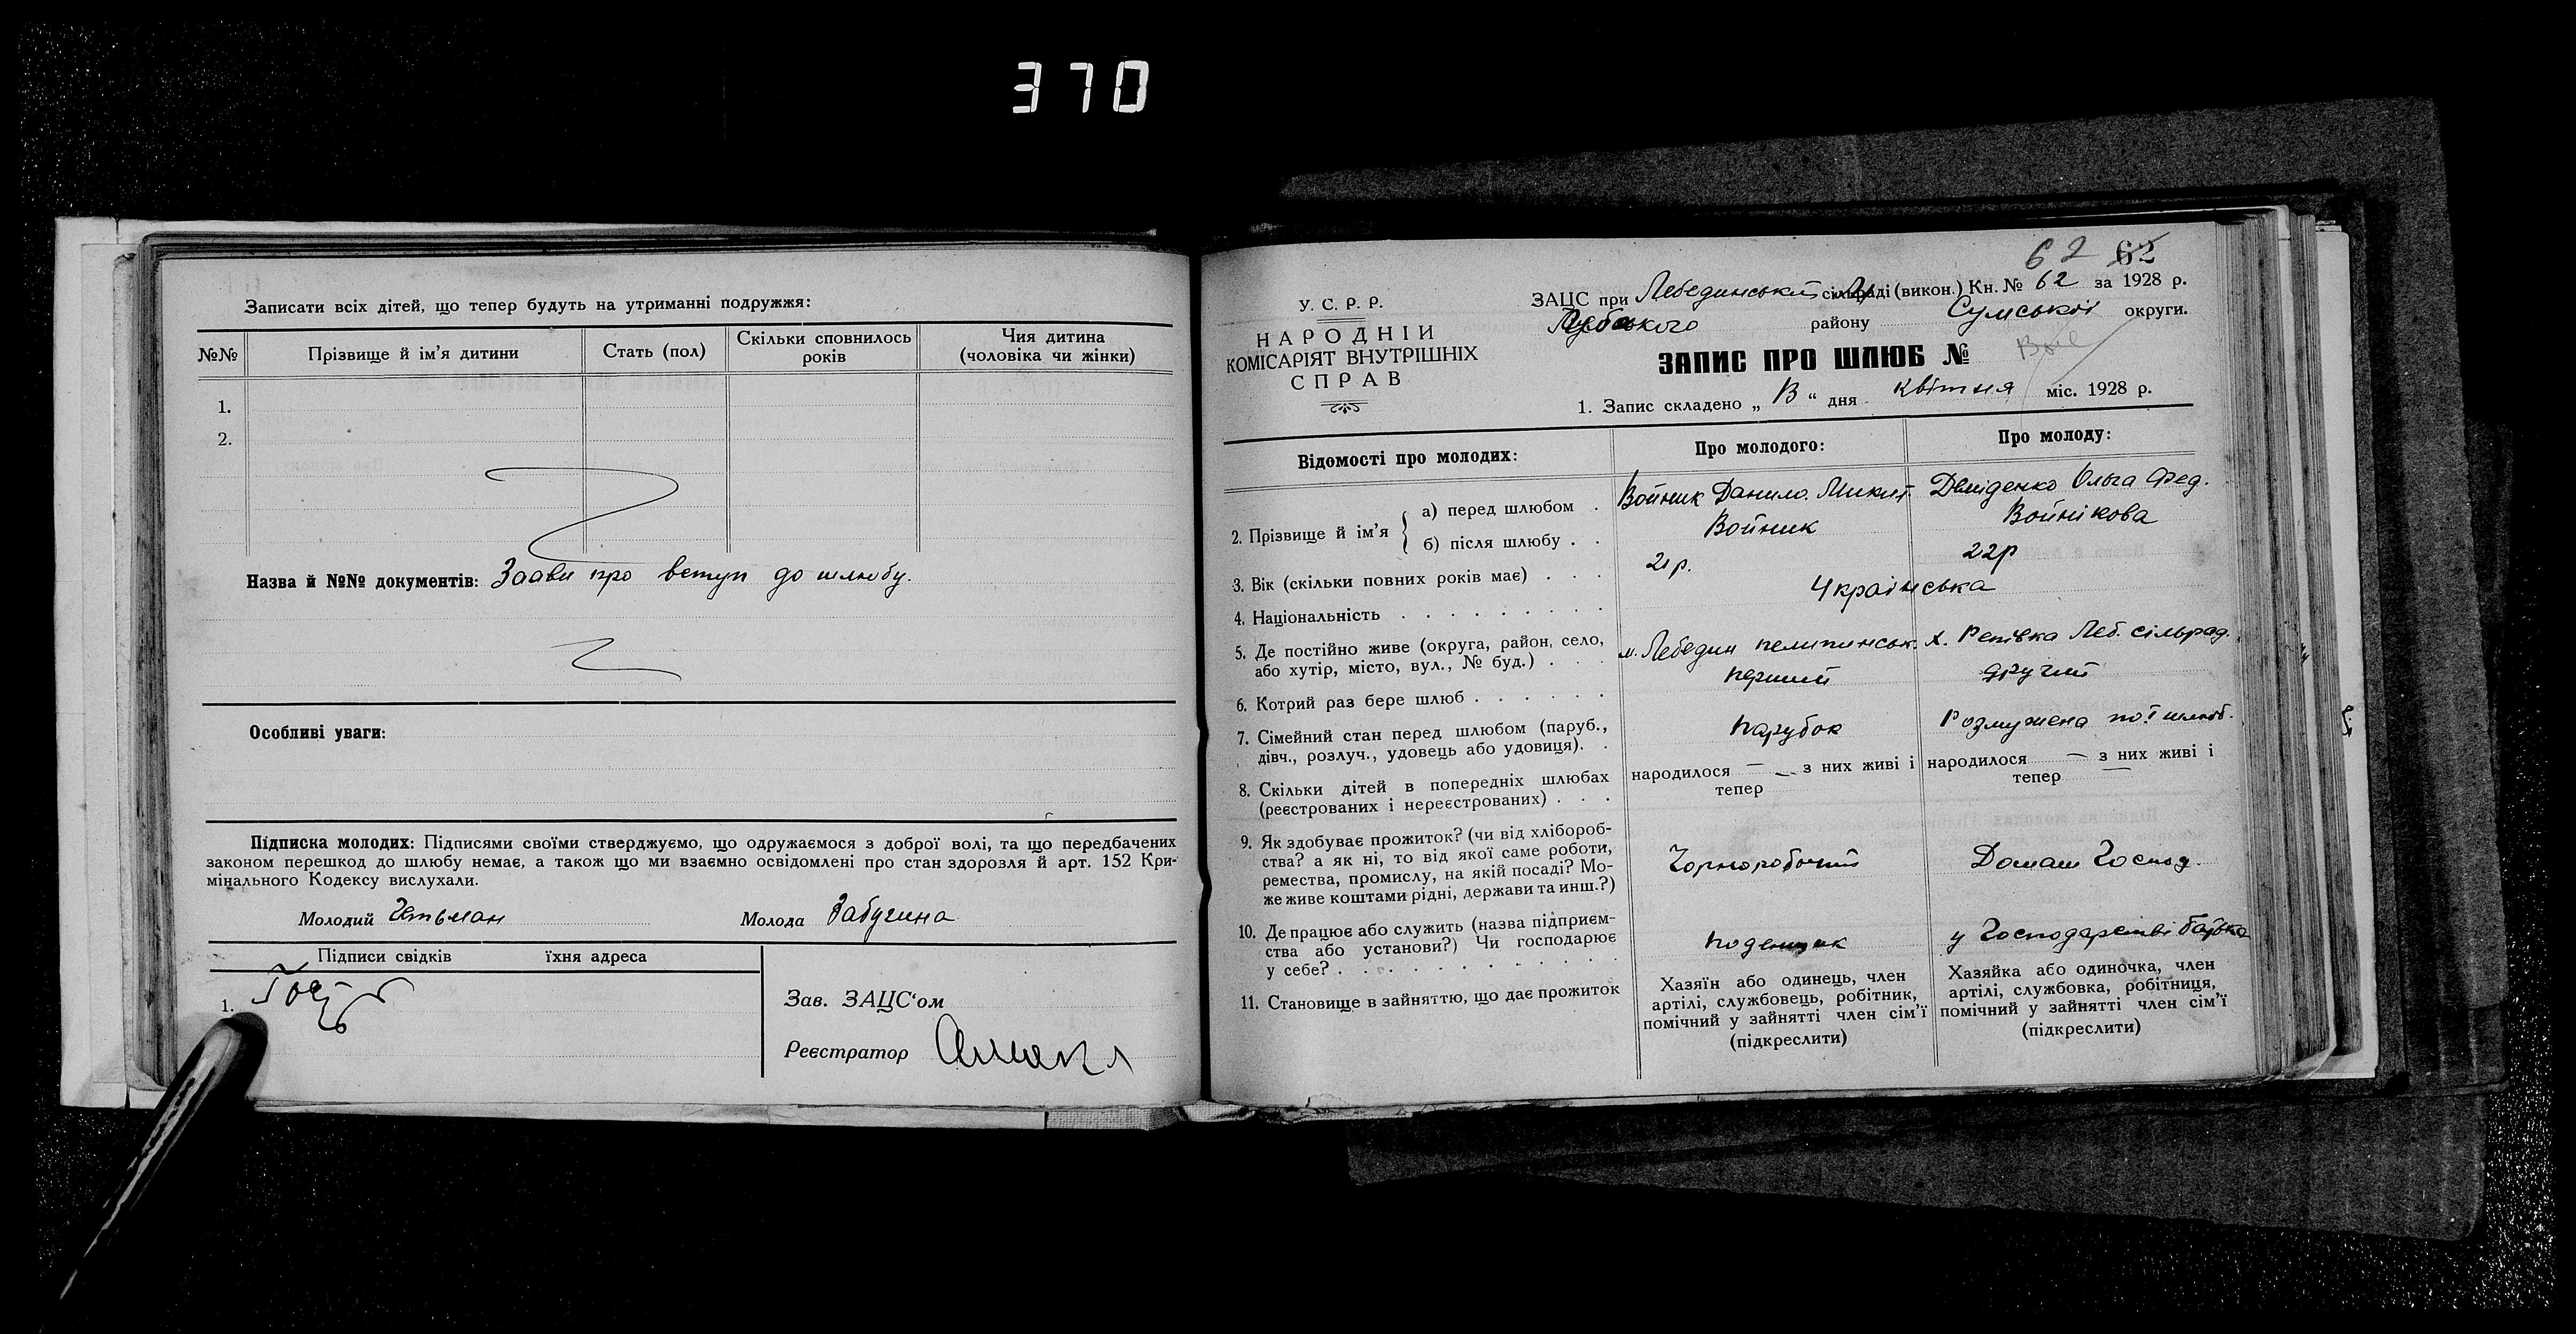 370
Записати всіх дітей, що тепер будуть на утриманні подружжя:
№№ Прізвище й ім'я дитини Стать (пол) Скільки сповнилось років Чия дитина (чоловіка чи жінки)
1.
2.
Назва й №№ документів: Заяви про вступ до шлюбу.
Особливі уваги:
Підписка молодих: Підписями своїми стверджуємо, що одружаємося з доброї волі, та що передбачених
законом перешкод до шлюбу немає, а також що ми взаємно освідомлені про стан здоровля й арт. 152 Кри-
мінального Кодексу вислухали.
Молодий Гетьман Молода Забугина
Підписи свідків їхня адреса
1.
Зав. ЗАЦС'ом
Реєстратор
62 62
У. С. Р. Р.
НАРОДНІЙ
КОМІСАРІЯТ ВНУТРІШНІХ
СПРАВ
ЗАЦС при Лебединській сільраді (викон.) Кн. № 62 за 1928 р.
району Сумської округи.
ЗАПИС ПРО ШЛЮБ №
1. Запис складено „ “ дня квітня міс. 1928 р.
Відомості про молодих: Про молодого: Про молоду:
2. Прізвище й ім'я
а) перед шлюбом . Войник Данило Микит. Деміденко Ольга Фед.
б) після шлюбу . . Войник Войнікова
3. Вік (скільки повних років має) . . . 21р. 22р
4. Національність . . . . . . . . . Українська
5. Де постійно живе (округа, район, село,
або хутір, місто, вул., № буд.) . . . м. Лебедин х. Репівка Леб. сільрад.
6. Котрий раз бере шлюб . . . . . . перший другий
7. Сімейний стан перед шлюбом (паруб.,
дівч., розлуч., удовець або удовиця). . парубок Розмужена по І шлюб.
8. Скільки дітей в попередніх шлюбах
(реєстрованих і нереєстрованих) . . . народилося — з них живі і тепер — народилося — з них живі і тепер —
9. Як здобуває прожиток? (чи від хлібороб-
ства? а як ні, то від якої саме роботи,
ремества, промислу, на якій посаді? Мо-
же живе коштами рідні, держави та инш.?) Чорноробочий Домаш Господ.
10. Де працює або служить (назва підприєм-
ства або установи?) Чи господарює
у себе? . . . . . . . . . . . . поденщик у Господарстві батька
11. Становище в зайняттю, що дає прожиток
Хазяїн або одинець, член
артілі, службовець, робітник,
помічний у зайнятті член сім'ї
(підкреслити)
Хазяйка або одиночка, член
артілі, службовка, робітниця,
помічний у зайнятті член сім'ї
(підкреслити)